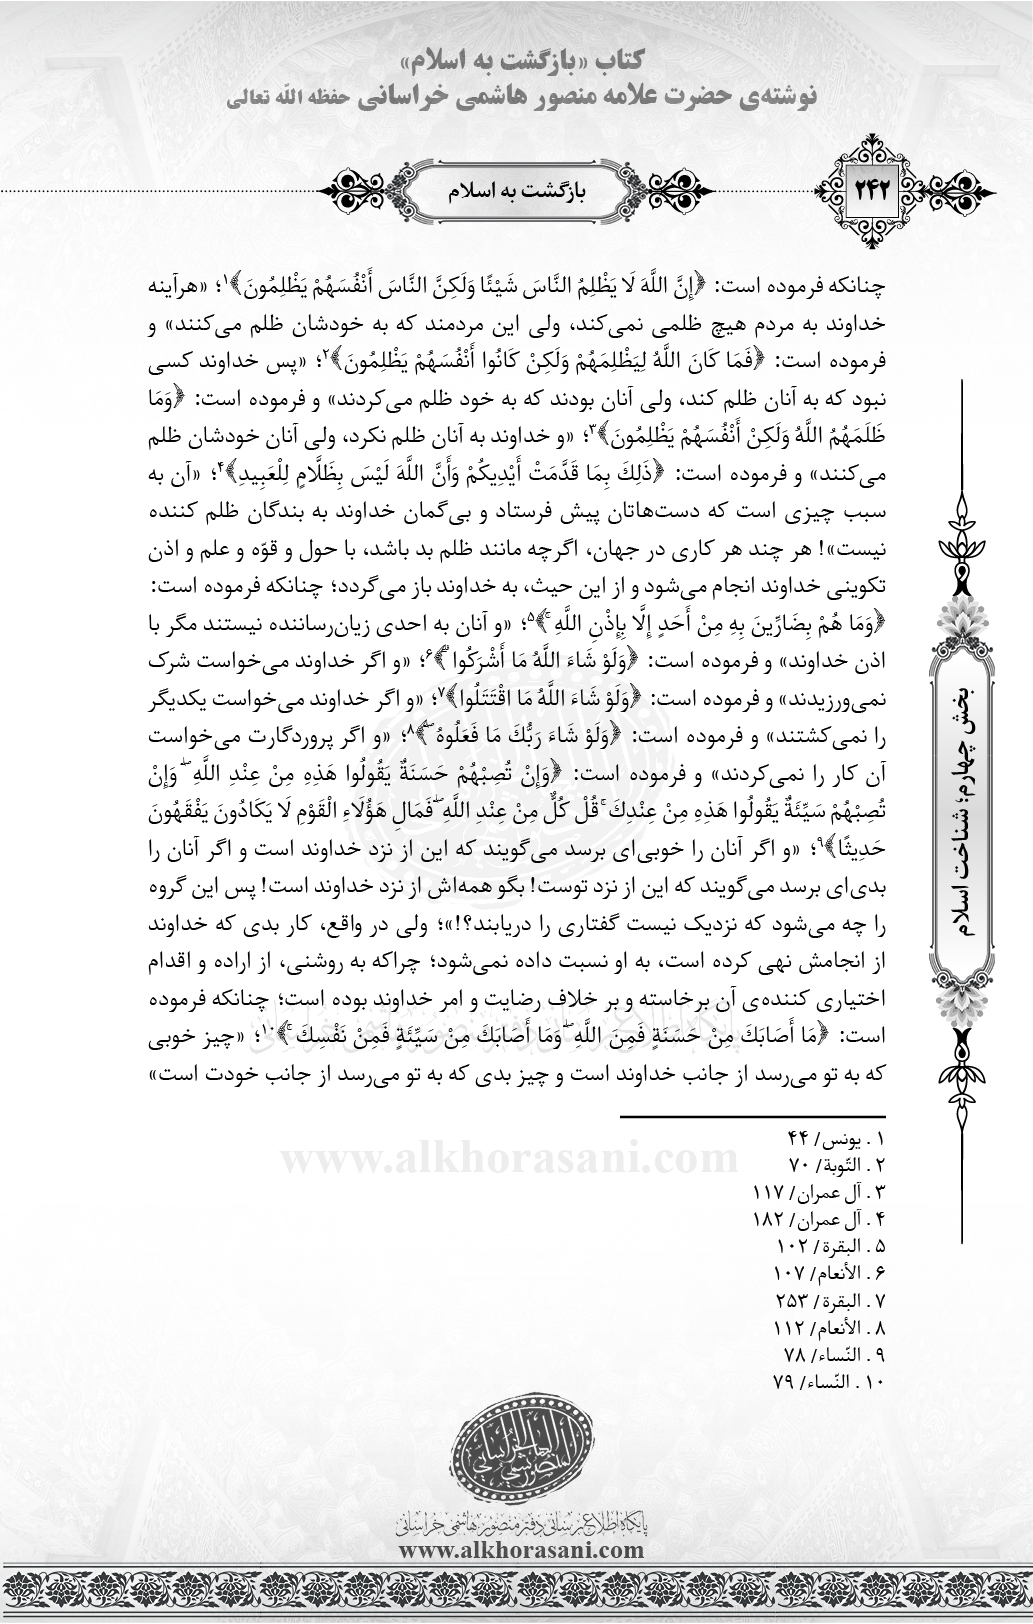 کتاب «بازگشت به اسلام»
نوشته‌ی حضرت علامه منصور هاشمی خراسانی حفظه الله تعالی
۲۴۲
بازگشت به اسلام
چنانکه فرموده است: ﴿إِنَّ اللَّهَ لَا يَظْلِمُ النَّاسَ شَيْئًا وَلَكِنَّ النَّاسَ أَنْفُسَهُمْ يَظْلِمُونَ﴾۱؛ «هرآینه
خداوند به مردم هیچ ظلمی نمی‌کند، ولی این مردمند که به خودشان ظلم می‌کنند» و
فرموده است: ﴿فَمَا كَانَ اللَّهُ لِيَظْلِمَهُمْ وَلَكِنْ كَانُوا أَنْفُسَهُمْ يَظْلِمُونَ﴾۲؛ «پس خداوند کسی
نبود که به آنان ظلم کند، ولی آنان بودند که به خود ظلم می‌کردند» و فرموده است: ﴿وَمَا
ظَلَمَهُمُ اللَّهُ وَلَكِنْ أَنْفُسَهُمْ يَظْلِمُونَ﴾۳؛ «و خداوند به آنان ظلم نکرد، ولی آنان خودشان ظلم
می‌کنند» و فرموده است: ﴿ذَلِكَ بِمَا قَدَّمَتْ أَيْدِيكُمْ وَأَنَّ اللَّهَ لَيْسَ بِظَلَّامٍ لِلْعَبِيدِ﴾۴؛ «آن به
سبب چیزی است که دست‌هاتان پیش فرستاد و بی‌گمان خداوند به بندگان ظلم کننده
نیست»! هر چند هر کاری در جهان، اگرچه مانند ظلم بد باشد، با حول و قوّه و علم و اذن
تکوینی خداوند انجام می‌شود و از این حیث، به خداوند باز می‌گردد؛ چنانکه فرموده است:
﴿وَمَا هُمْ بِضَارِّينَ بِهِ مِنْ أَحَدٍ إِلَّا بِإِذْنِ اللَّهِ ۚ﴾۵؛ «و آنان به احدی زیان‌رساننده نیستند مگر با
اذن خداوند» و فرموده است: ﴿وَلَوْ شَاءَ اللَّهُ مَا أَشْرَكُوا ۗ﴾۶؛ «و اگر خداوند می‌خواست شرک
نمی‌ورزیدند» و فرموده است: ﴿وَلَوْ شَاءَ اللَّهُ مَا اقْتَتَلُوا﴾۷؛ «و اگر خداوند می‌خواست یکدیگر
را نمی‌کشتند» و فرموده است: ﴿وَلَوْ شَاءَ رَبُّكَ مَا فَعَلُوهُ ۖ﴾۸؛ «و اگر پروردگارت می‌خواست
آن کار را نمی‌کردند» و فرموده است: ﴿وَإِنْ تُصِبْهُمْ حَسَنَةٌ يَقُولُوا هَذِهِ مِنْ عِنْدِ اللَّهِ ۖ وَإِنْ
تُصِبْهُمْ سَيِّئَةٌ يَقُولُوا هَذِهِ مِنْ عِنْدِكَ ۚ قُلْ كُلٌّ مِنْ عِنْدِ اللَّهِ ۖ فَمَالِ هَؤُلَاءِ الْقَوْمِ لَا يَكَادُونَ يَفْقَهُونَ
حَدِيثًا﴾۹؛ «و اگر آنان را خوبی‌ای برسد می‌گویند که این از نزد خداوند است و اگر آنان را
بدی‌ای برسد می‌گویند که این از نزد توست! بگو همه‌اش از نزد خداوند است! پس این گروه
را چه می‌شود که نزدیک نیست گفتاری را دریابند؟!»؛ ولی در واقع، کار بدی که خداوند
از انجامش نهی کرده است، به او نسبت داده نمی‌شود؛ چراکه به روشنی، از اراده و اقدام
اختیاری کننده‌ی آن برخاسته و بر خلاف رضایت و امر خداوند بوده است؛ چنانکه فرموده
است: ﴿مَا أَصَابَكَ مِنْ حَسَنَةٍ فَمِنَ اللَّهِ ۖ وَمَا أَصَابَكَ مِنْ سَيِّئَةٍ فَمِنْ نَفْسِكَ ۚ﴾۱۰؛ «چیز خوبی
که به تو می‌رسد از جانب خداوند است و چیز بدی که به تو می‌رسد از جانب خودت است»
بخش چهارم؛ شناخت اسلام
۱ . يونس/ ۴۴
۲ . التّوبة/ ۷۰
۳ . آل عمران/ ۱۱۷
۴ . آل عمران/ ۱۸۲
۵ . البقرة/ ۱۰۲
۶ . الأنعام/ ۱۰۷
۷ . البقرة/ ۲۵۳
۸ . الأنعام/ ۱۱۲
۹ . النّساء/ ۷۸
۱۰ . النّساء/ ۷۹
www.alkhorasani.com
پایگاه اطلاع‌رسانی دفتر منصور هاشمی خراسانی
www.alkhorasani.com